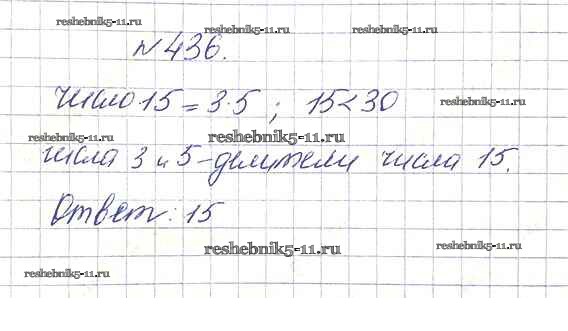 reshebnik5-11.ru
reshebnik5-11.ru reshebnik5-11.ru
№436.
число 15 = 3·5 ; 15<30 reshebnik5-11.ru
reshebnik5-11.ru reshebnik5-11.ru
числа 3 и 5-делители числа 15.
Ответ: 15
reshebnik5-11.ru reshebnik5-11.ru
reshebnik5-11.ru reshebnik5-11.ru